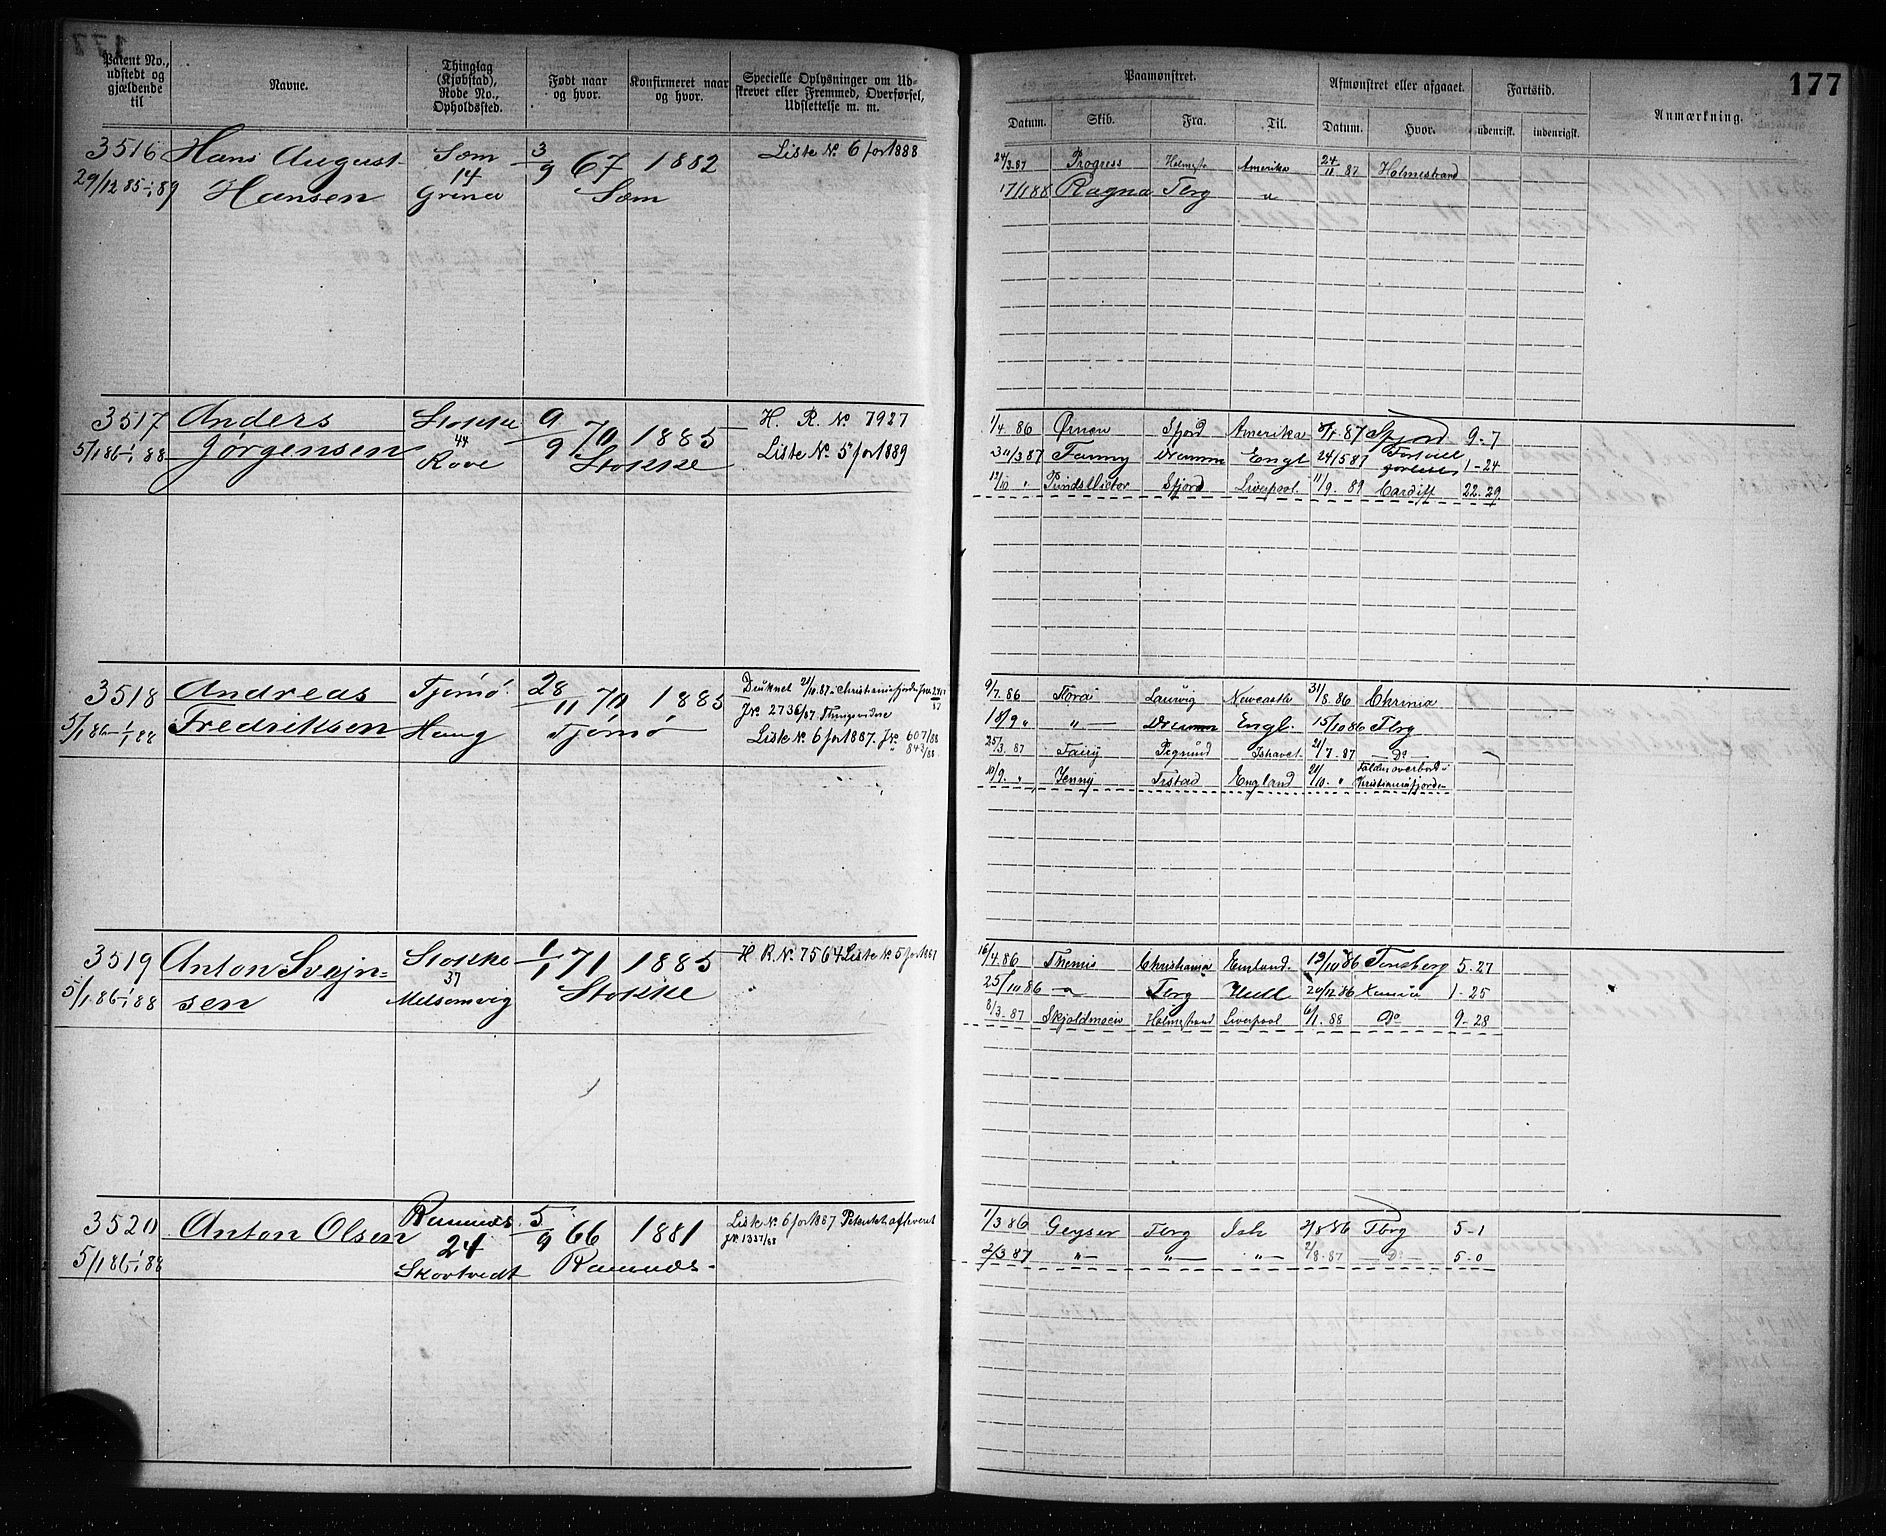 177
Patent No., udstedt og gjældende til
Navne.
Thinglag (Kjøbstad), Rode No., Opholdssted.
Født naar og hvor.
Konfirmeret naar og hvor.
Specielle Oplysninger om Udskrevet eller Fremmed, Overførsel, Udslettelse m. m.
Paamønstret.
Afmønstret eller afgaaet.
Fartstid.
Anmærkning.
Datum. Skib. Fra. Til. Datum. Hvor. udenrisk. indenrigsk.
3516 Hans August Søm 3/9 67 1882 Liste No 6 for 1888
14
29/12 85-1/1 89 Hansen Grinei Søm
24/3.87 Progress Holmestr Amerika 24/11 87 Holmestrand
17/1 88 Ragna Tbrg
3517 Anders Stokke 9/9 70 1885 H. R. No 7927
44
5/1 86-1/1 88 Jørgensen Rove Stokke Liste No 5 for 1889
1/4. 86 Ørnen Sfjord Amerika 87 Sfjord 9-7
3/3 87 Fanny Dramm Engl 24/5 87 1-24
12/10 " Sfjord Liverpool. 11/9. 89 Cardiff 22-29
3518 Andreas Tjømø. 28/11 70 1885 Druknet 21/10.87 i Christianiafjorden
JNo 2736/87
5/1 86-1/1 88 Fredriksen Haug Tjømø Liste No 6 for 1887. JNo 607/88
843/88
9/7. 86 Flora Laurvig Newcastle 31/8. 86 Chrinia
18/9 " " Dramm Engl. 15/10 86 Tbrg
25/3. 87 Fairy Ishavet 21/7. 87 Do
10/9. " Jenny Frstad England 21/10. " Falden overbord i Kristianiafjorden
3519 Anton Svejn- Stokke 1/1 71 1885 H R. No 7564 Liste No 5 for 1887
37
5/1 86-1/1 88 sen Melsomvig Stokke
16/4. 86 Themis Christiania 12/10 86 Tønsberg 5-27
25/10 86 Tbrg Hull 20/12 86 1-25
8/3. 87 Skjoldmøen Holmestrand Liverpool 6/1. 88 Do 9-28
3520 Anton Olsen Ramnæs. 5/9 66 1881 Liste No 6 for 1887 Patentet afleveret
24 JNo 1337/88
5/1 86-1/1 88 Skortvedt Ramnæs.
1/3 86 Geyser Tbrg Ish 2/8 86 Tbrg 5-1
2/3 87 " " " 2/8. 87 Do 5-0